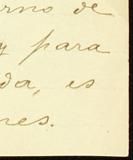 erno de
y para
da, es
nes.